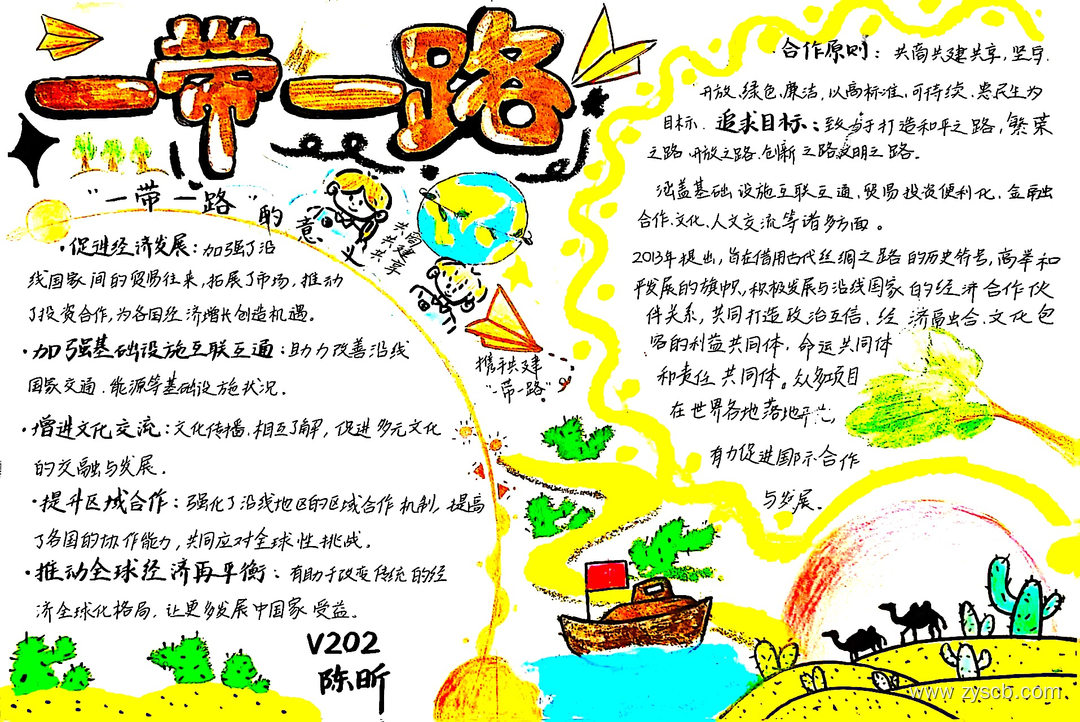 一带一路
"一带一路"的意义
·促进经济发展：加强了沿
线国家间的贸易往来，拓展了市场，推动
了投资合作，为各国经济增长创造机遇。
·加强基础设施互联互通：助力改善沿线
国家交通、能源等基础设施状况。
·增进文化交流：文化传播、相互了解，促进多元文化
的交融与发展。
·提升区域合作：强化了沿线地区的区域合作机制，提高
了各国的协作能力，共同应对全球性挑战。
·推动全球经济再平衡：有助于改变传统的经
济全球化格局，让更多发展中国家受益。
V202
陈昕
共商
共建
共享
携手共建
"一带一路"。
·合作原则：共商共建共享，坚导.
开放、绿色、廉洁，以高标准、可持续、惠民生为
目标．追求目标：致力于打造和平之路，繁荣
之路开放之路、创新之路文明之路。
涵盖基础设施互联互通，贸易投资便利化、金融
合作、文化、人文交流等诸多方面。
2013年提出，旨在借用古代丝绸之路的历史符号，高举和
平发展的旗帜，积极发展与沿线国家的经济合作伙
伴关系，共同打造政治互信、经济融合、文化包
容的利益共同体，命运共同体
和责任共同体。众多项目
在世界各地落地
有力促进国际合作
与发展．
www.zyscb.com